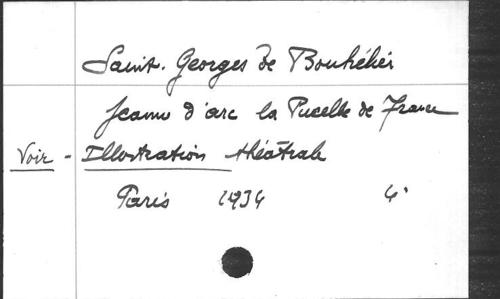 Saint-Georges de Bouhélier
Jeanne d'arc la Pucelle de France
Voir - Illustration théâtrale
Paris 1934 4°